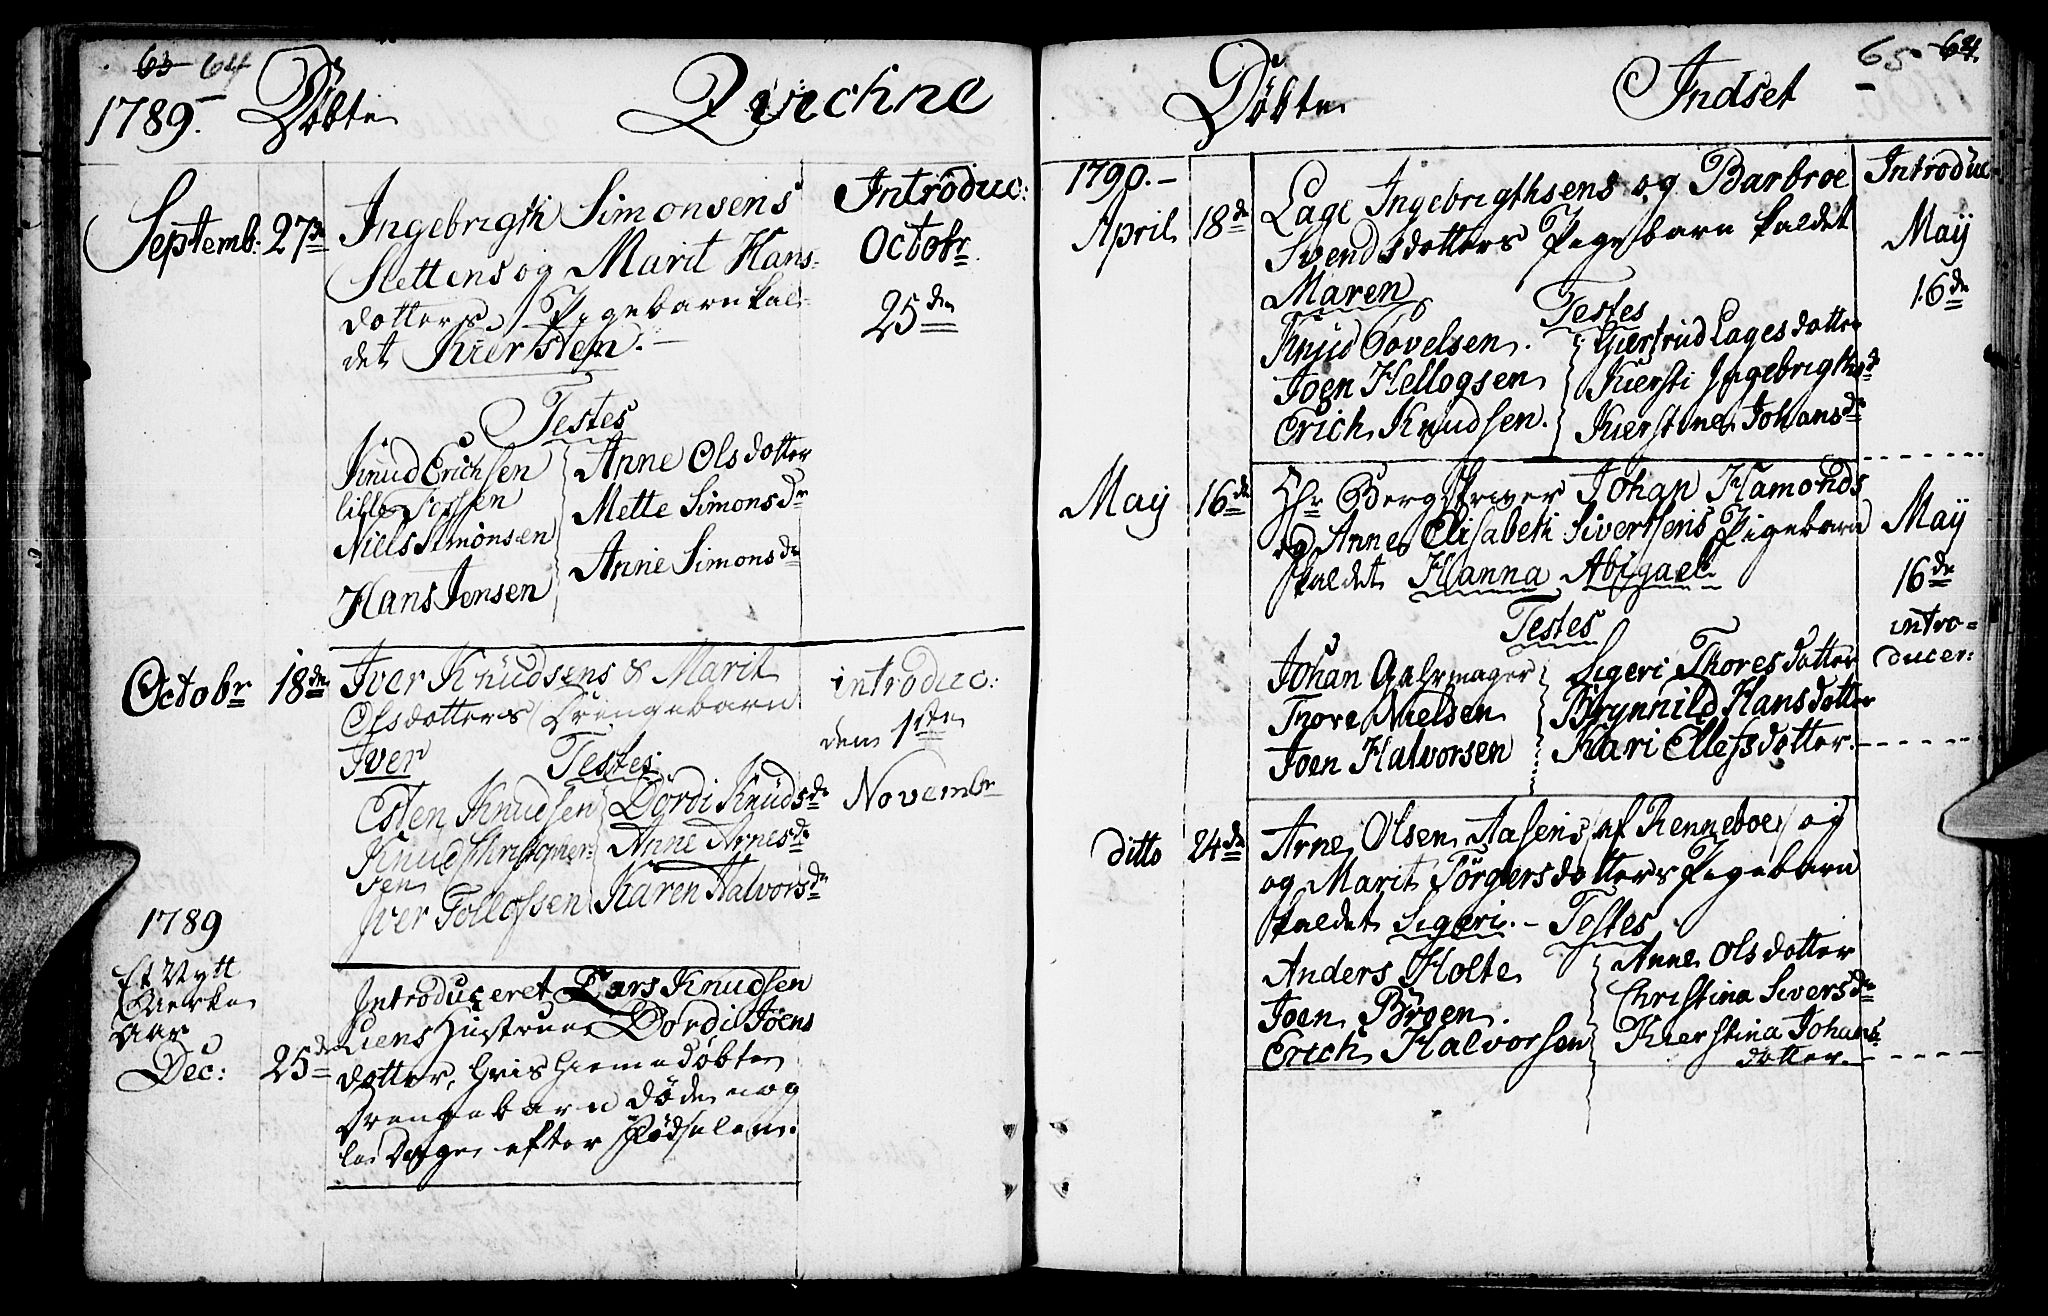 63 64
1789. Døbte Qvechne
Septemb: 27de
Ingebrigth Simonsens
Slettens og Marit Hans-
dotters Pigebarn kal-
det Kiersten. -
Introduc:
Octobr
25de
Testes
Knud Erichsen
lille
Niels Simonsen
Hans Jensen
Anne Olsdotter
Mette Simonsdr
Anne Simonsdr
Octobr 18de
Iver Knudsens & Marit
Olsdotters Drengebarn
Iver Testes
Esten Knudsen
Knud Christopher-
sen
Iver Tollofsen
Dordi Knudsdr
Anne Arnesdr
Karen Halvorsdr
introduc:
den 1ste
Novembr
1789
Et Nytt
Kierke
Aar
Dec: 25de
Introduceret Lars Knudsen
Liens Hustrue Dordi Joens
dotter, hvis hiemedøbte
Drengebarn døde nog
le Dage efter Fødselen.
Døbte Indset 65 64.
1790. -
April 18de
Lage Ingebrigthsens og Barbroe
Svendsdotters Pigebarn kaldet
Maren
Testes
Knud Povelsen.
Joen Hellogsen
Erich Knudsen.
Giertrud Lagesdotter
Kiersti Ingebrigthsd
Kierstine Johansdr
Introduc
May
16de
May 16de
Hr Bergskriver Johan Hamonds
og Anne Elisabeth Sivertsens Pigebarn
kaldet Hanna Abigael
Testes
Johan
Thore Nielsen
Joen Halvorsen
Sigeri Thoresdotter
Brynnild Hansdotter
Kari Ellefsdotter.
May
16de
intro-
ducer:
ditto 24de
Arne Olsen Aasens af Renneboe og
og Marit Törgersdotters Pigebarn
kaldet Sigeri. - Testes
Anders Holte
Joen Broen.
Erich Halvorsen
Anne Olsdotter
Christina Siversdr
Kierstina Johans
dotter.